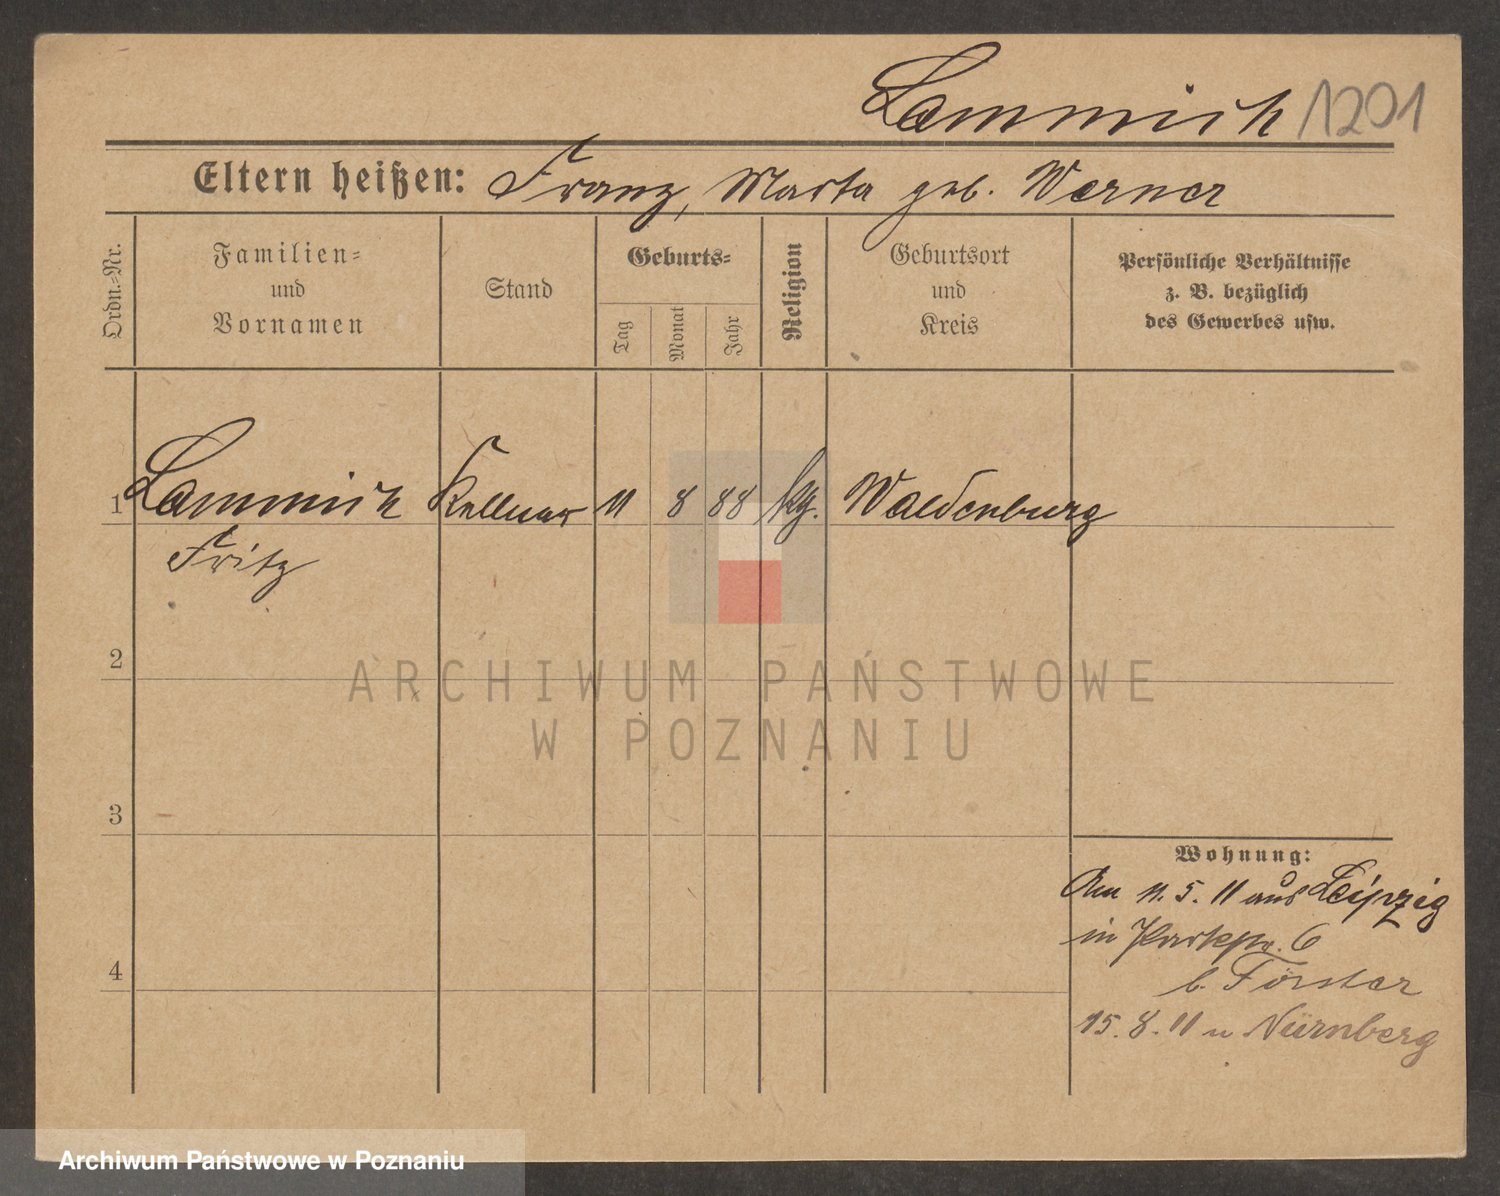 Lammich 1201
Eltern heißen: Franz, Marta geb. Werner
Ordn.=Nr.
Familien=
und
Vornamen
Stand
Geburts=
Tag
Monat
Jahr
Religion
Geburtsort
und
Kreis
Persönliche Verhältnisse
z. B. bezüglich
des Gewerbes usw.
1 Lammich Kellner 11 8 88 kg. Waldenburg
Fritz
2
3
4
Wohnung:
Am 11. 5. 11 aus Leipzig
in Parkstr. 6
b. Förster
15. 8. 11 n Nürnberg
ARCHIWUM PAŃSTWOWE
W POZNANIU
Archiwum Państwowe w Poznaniu